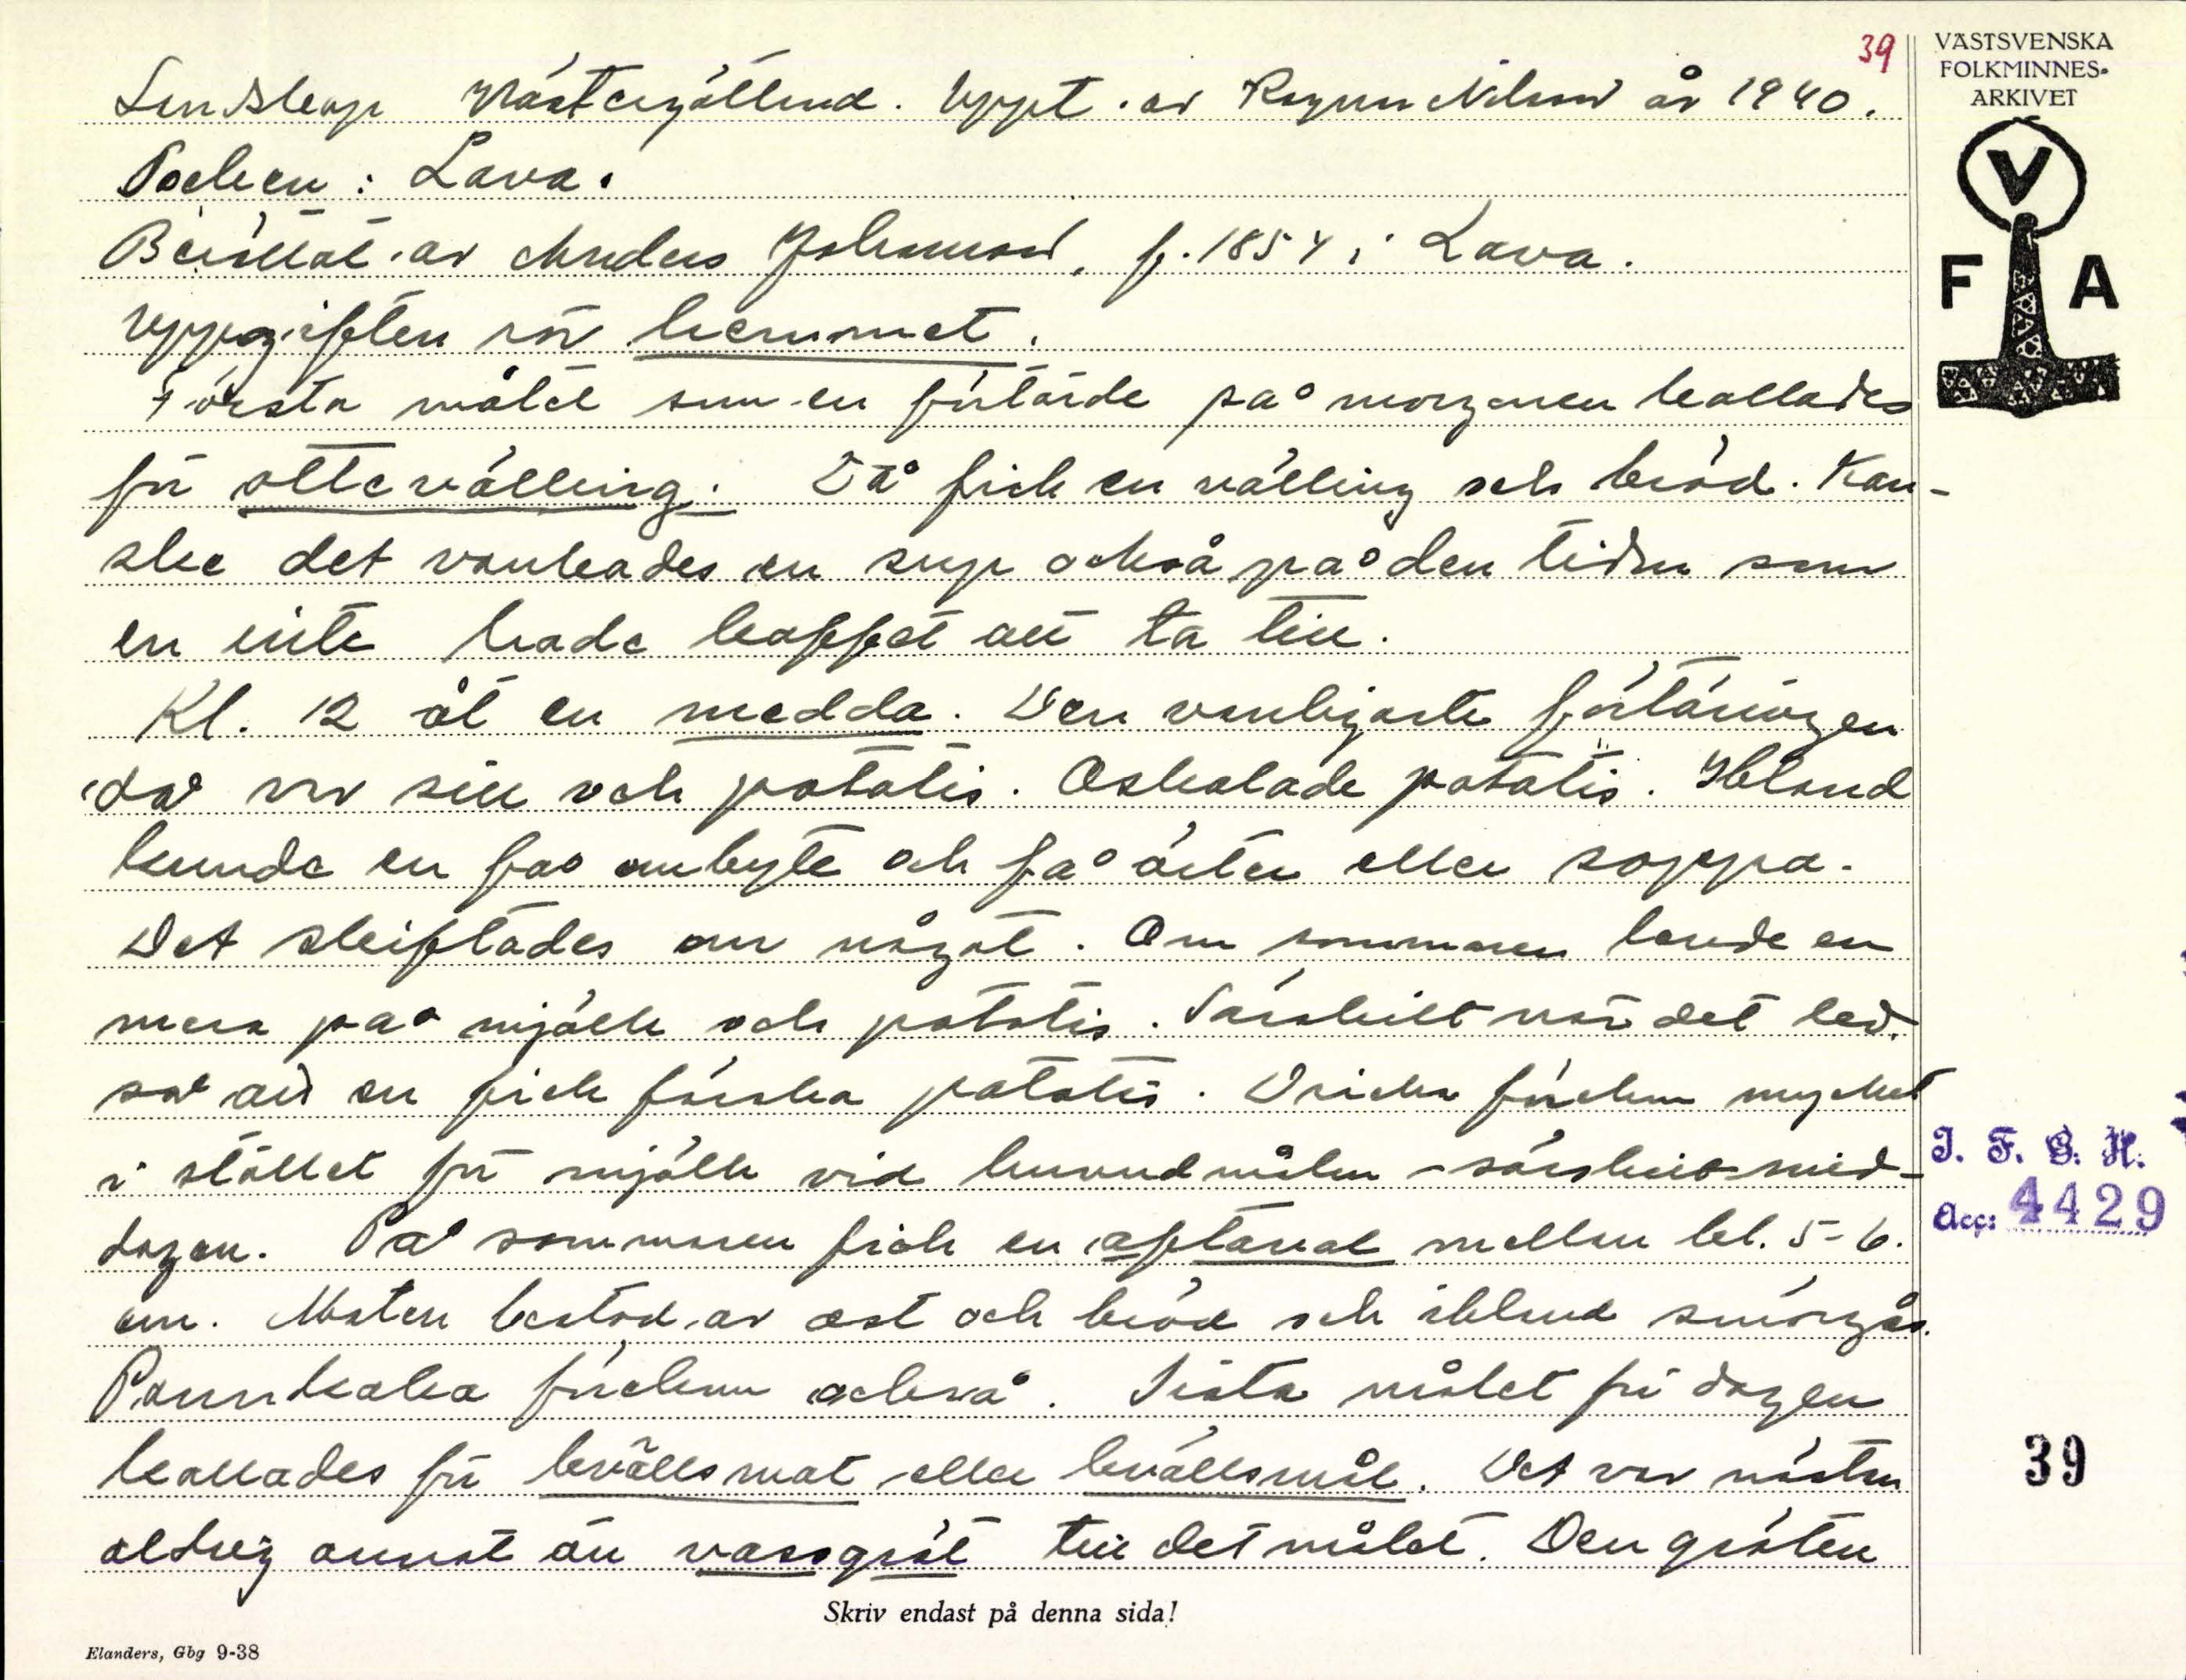 39
VÄSTSVENSKA
FOLKMINNES-
ARKIVET
V
F A
Landskap Västergötland. Uppt. av Ragnar Nilsson år 1940.
Socken: Lava.
Berättat av Anders Johansson, f. 1854 i Lava.
Uppgiften rör hemmet.
Första målet som en förtärde på morgonen kallades
för ottevälling. Då fick en välling och bröd. Kan-
ske det vankades en sup också på den tiden som
en inte hade kaffet att ta till.
Kl. 12 åt en medda. Den vanligaste förtäringen
då var sill och potatis. Oskalade potatis. Ibland
kunde en få ombyte och få ärter eller soppa.
Det skiftades om något. Om sommaren levde en
mera på mjölk och potatis. Särskilt när det led
så att en fick färska potatis. Dricka förekom mycket
i stället för mjölk vid huvudmålen - särskilt mid-
dagen. På sommaren fick en aftanat mellan kl. 5-6.
em. Maten bestod av ost och bröd och ibland smörgås.
Pannkaka förekom också. Sista målet för dagen
kallades för kvällsmat eller kvällsmål. Det var nästan
aldrig annat än vassgröt till det målet. Den gröten
Skriv endast på denna sida!
Elanders, Gbg 9-38
I. F. G. H.
Acc: 4429
39